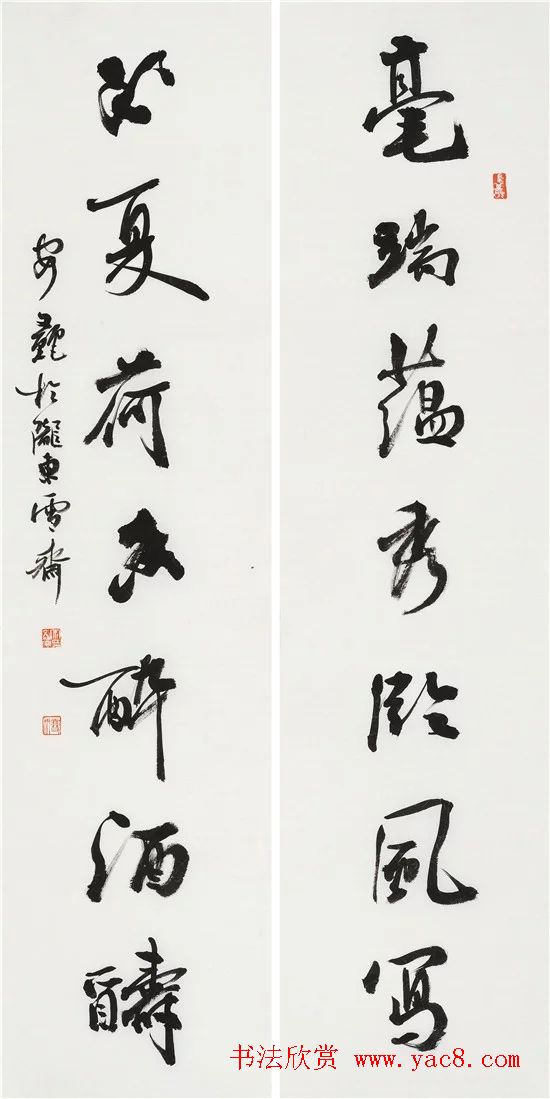 毫端蘊秀臨風寫
夏荷醉酒醻
於隴東雪齋
书法欣赏 www.yac8.com